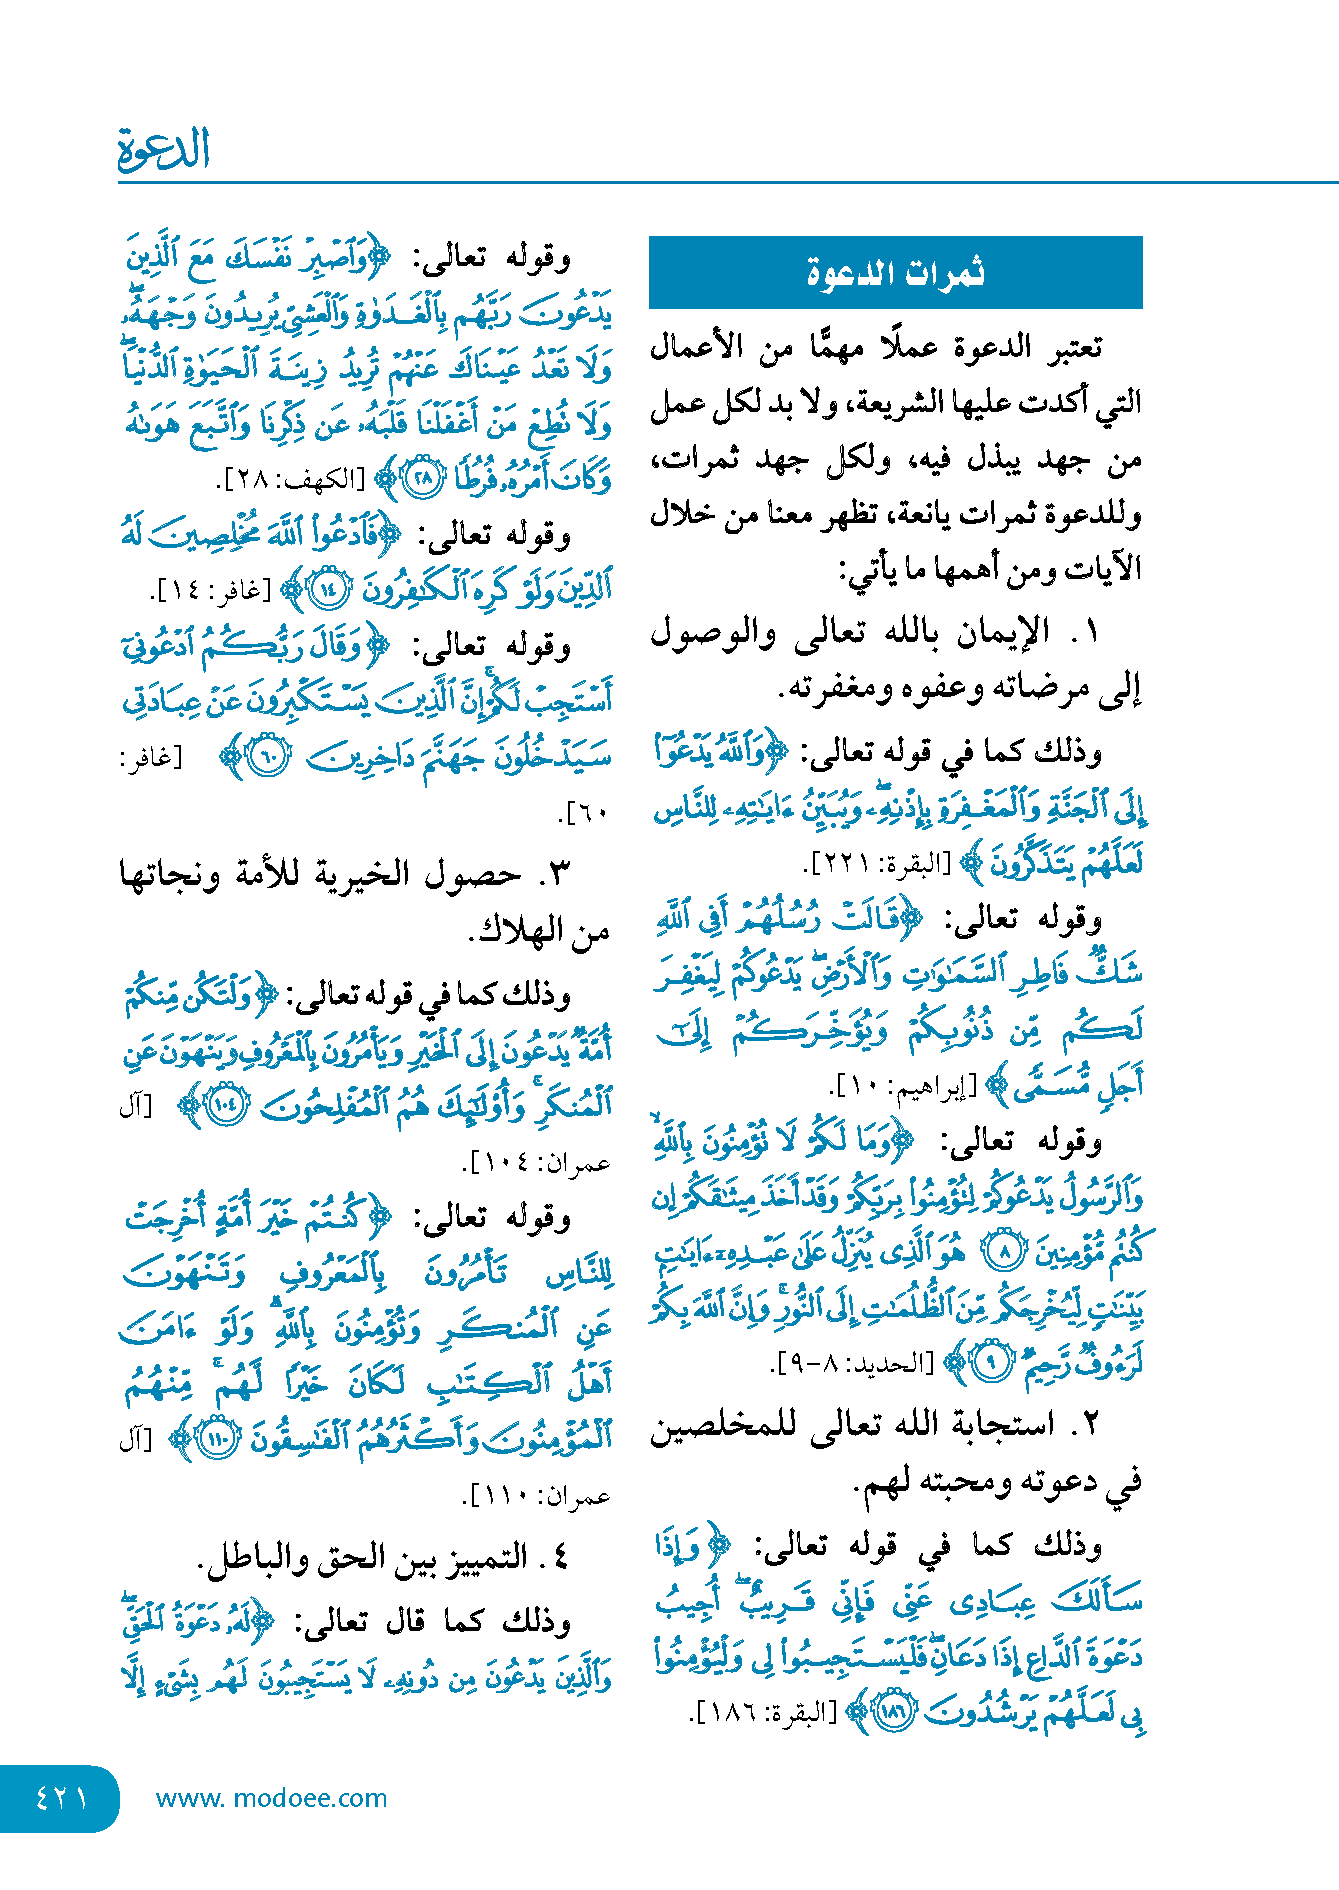 الدعوة
ثمرات الدعوة
تعتبر الدعوة عملًا مهمًّا من الأعمال
التي أكدت عليها الشريعة، ولا بد لكل عمل
من جهد يبذل فيه، ولكل جهد ثمرات،
وللدعوة ثمرات يانعة، تظهر معنا من خلال
الآيات ومن أهمها ما يأتي:
١. الإيمان بالله تعالى والوصول
إلى مرضاته وعفوه ومغفرته.
وذلك كما في قوله تعالى: ﴿وَٱللَّهُ يَدْعُوٓا۟
إِلَى ٱلْجَنَّةِ وَٱلْمَغْفِرَةِ بِإِذْنِهِۦ ۖ وَيُبَيِّنُ ءَايَـٰتِهِۦ لِلنَّاسِ
لَعَلَّهُمْ يَتَذَكَّرُونَ﴾ [البقرة: ٢٢١].
وقوله تعالى: ﴿قَالَتْ رُسُلُهُمْ أَفِى ٱللَّهِ
شَكٌّ فَاطِرِ ٱلسَّمَـٰوَٰتِ وَٱلْأَرْضِ ۖ يَدْعُوكُمْ لِيَغْفِرَ
لَكُم مِّن ذُنُوبِكُمْ وَيُؤَخِّرَكُمْ إِلَىٰٓ
أَجَلٍ مُّسَمًّى﴾ [إبراهيم: ١٠].
وقوله تعالى: ﴿وَمَا لَكُمْ لَا تُؤْمِنُونَ بِٱللَّهِ ۙ
وَٱلرَّسُولُ يَدْعُوكُمْ لِتُؤْمِنُوا۟ بِرَبِّكُمْ وَقَدْ أَخَذَ مِيثَـٰقَكُمْ إِن
كُنتُم مُّؤْمِنِينَ ٨ هُوَ ٱلَّذِى يُنَزِّلُ عَلَىٰ عَبْدِهِۦٓ ءَايَـٰتٍۭ
بَيِّنَـٰتٍ لِّيُخْرِجَكُم مِّنَ ٱلظُّلُمَـٰتِ إِلَى ٱلنُّورِ ۚ وَإِنَّ ٱللَّهَ بِكُمْ
لَرَءُوفٌ رَّحِيمٌ ٩﴾ [الحديد: ٨-٩].
٢. استجابة الله تعالى للمخلصين
في دعوته ومحبته لهم.
وذلك كما في قوله تعالى: ﴿وَإِذَا
سَأَلَكَ عِبَادِى عَنِّى فَإِنِّى قَرِيبٌ ۖ أُجِيبُ
دَعْوَةَ ٱلدَّاعِ إِذَا دَعَانِ ۖ فَلْيَسْتَجِيبُوا۟ لِى وَلْيُؤْمِنُوا۟
بِى لَعَلَّهُمْ يَرْشُدُونَ ١٨٦﴾ [البقرة: ١٨٦].
وقوله تعالى: ﴿وَٱصْبِرْ نَفْسَكَ مَعَ ٱلَّذِينَ
يَدْعُونَ رَبَّهُم بِٱلْغَدَوٰةِ وَٱلْعَشِىِّ يُرِيدُونَ وَجْهَهُۥ ۖ
وَلَا تَعْدُ عَيْنَاكَ عَنْهُمْ تُرِيدُ زِينَةَ ٱلْحَيَوٰةِ ٱلدُّنْيَا ۖ
وَلَا تُطِعْ مَنْ أَغْفَلْنَا قَلْبَهُۥ عَن ذِكْرِنَا وَٱتَّبَعَ هَوَىٰهُ
وَكَانَ أَمْرُهُۥ فُرُطًا ٢٨﴾ [الكهف: ٢٨].
وقوله تعالى: ﴿فَٱدْعُوا۟ ٱللَّهَ مُخْلِصِينَ لَهُ
ٱلدِّينَ وَلَوْ كَرِهَ ٱلْكَـٰفِرُونَ ١٤﴾ [غافر: ١٤].
وقوله تعالى: ﴿وَقَالَ رَبُّكُمُ ٱدْعُونِىٓ
أَسْتَجِبْ لَكُمْ ۚ إِنَّ ٱلَّذِينَ يَسْتَكْبِرُونَ عَنْ عِبَادَتِى
سَيَدْخُلُونَ جَهَنَّمَ دَاخِرِينَ ٦٠﴾ [غافر:
٦٠].
٣. حصول الخيرية للأمة ونجاتها
من الهلاك.
وذلك كما في قوله تعالى: ﴿وَلْتَكُن مِّنكُمْ
أُمَّةٌ يَدْعُونَ إِلَى ٱلْخَيْرِ وَيَأْمُرُونَ بِٱلْمَعْرُوفِ وَيَنْهَوْنَ عَنِ
ٱلْمُنكَرِ ۚ وَأُو۟لَـٰٓئِكَ هُمُ ٱلْمُفْلِحُونَ ١٠٤﴾ [آل
عمران: ١٠٤].
وقوله تعالى: ﴿كُنتُمْ خَيْرَ أُمَّةٍ أُخْرِجَتْ
لِلنَّاسِ تَأْمُرُونَ بِٱلْمَعْرُوفِ وَتَنْهَوْنَ
عَنِ ٱلْمُنكَرِ وَتُؤْمِنُونَ بِٱللَّهِ ۗ وَلَوْ ءَامَنَ
أَهْلُ ٱلْكِتَـٰبِ لَكَانَ خَيْرًا لَّهُم ۚ مِّنْهُمُ
ٱلْمُؤْمِنُونَ وَأَكْثَرُهُمُ ٱلْفَـٰسِقُونَ ١١٠﴾ [آل
عمران: ١١٠].
٤. التمييز بين الحق والباطل.
وذلك كما قال تعالى: ﴿لَهُۥ دَعْوَةُ ٱلْحَقِّ ۖ
وَٱلَّذِينَ يَدْعُونَ مِن دُونِهِۦ لَا يَسْتَجِيبُونَ لَهُم بِشَىْءٍ إِلَّا
www. modoee.com
٤٢١